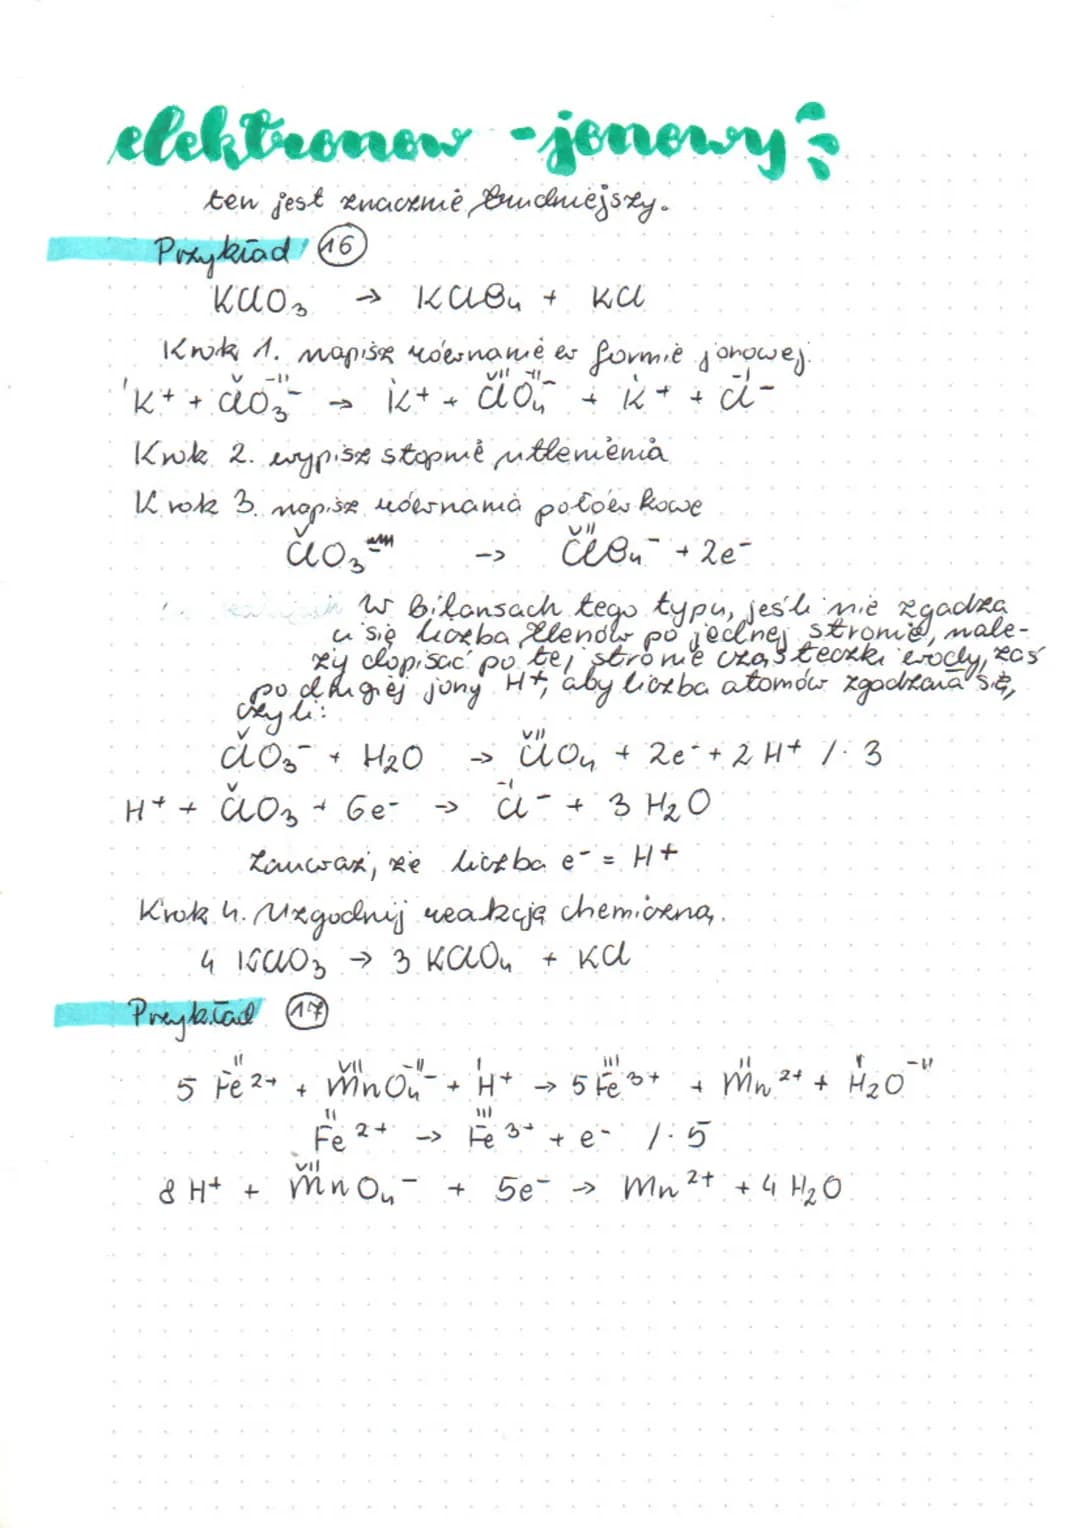 elektronow-jonowy
ten jest znacznie trudniejszy.
Przykład 16
KClO₃ → KClO₄ + KCl
Krok 1. napisz równanie w formie jonowej.
K⁺ + ClO₃⁻ → K⁺ + ClO₄⁻ + K⁺ + Cl⁻
Krok 2. wypisz stopnie utlenienia
Krok 3. napisz równania połówkowe
V VII
ClO₃ → ClO₄⁻ + 2e⁻
W bilansach tego typu, jeśli nie zgadza
się liczba tlenów po jednej stronie, nale-
ży dopisać po tej stronie cząsteczki wody, zaś
po drugiej jony H⁺, aby liczba atomów zgadzała się,
czyli:
V VII
ClO₃⁻ + H₂O → ClO₄ + 2e⁻ + 2H⁺ /·3
V -I
H⁺ + ClO₃ + 6e⁻ → Cl⁻ + 3H₂O
Zauważ, że liczba e⁻ = H⁺
Krok 4. Uzgodnij reakcję chemiczną.
4 KClO₃ → 3 KClO₄ + KCl
Przykład 17
II VII -II I III II I -II
5 Fe²⁺ + MnO₄⁻ + H⁺ → 5 Fe³⁺ + Mn²⁺ + H₂O
II III
Fe²⁺ → Fe³⁺ + e⁻ /·5
VII
8 H⁺ + MnO₄⁻ + 5e⁻ → Mn²⁺ + 4 H₂O